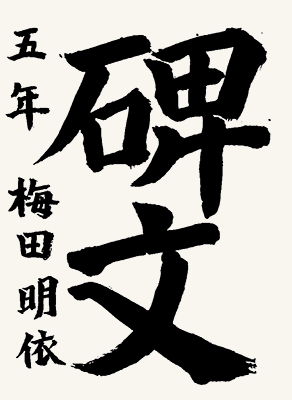 碑文
五年 梅田明依